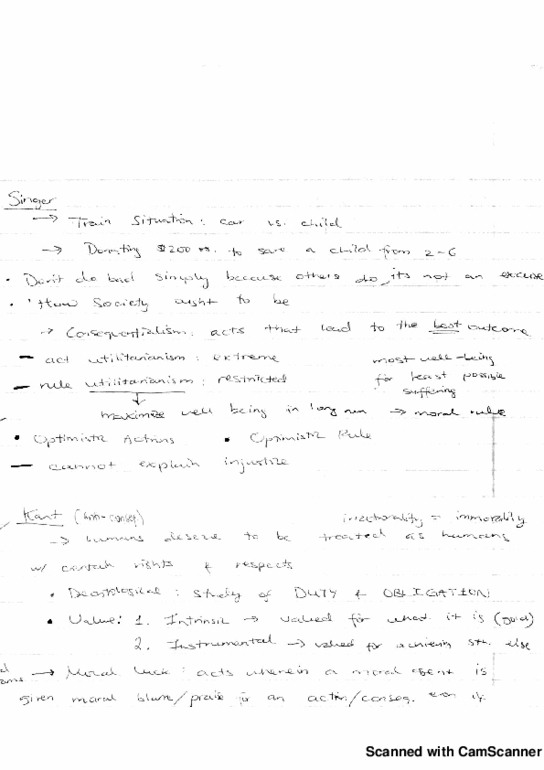 Singer
→ Train Situation: car vs. child
→ Donating $200 to save a child from 2-6
• Don't do bad simply because others do, its not an excuse
• 'How Society ought to be
→ Consequentialism: acts that lead to the best outcome
– act utilitarianism: extreme
most well-being
– rule utilitarianism: restricted
for least possible
suffering
maximize well being in long run → moral rule
• Optimistic Actions • Optimistic Rule
– cannot explain injustice
Kant (anti-conseq) irrationality = immorality
→ humans deserve to be treated as humans
w/ certain rights & respects
• Deontological: study of DUTY & OBLIGATION
• Value: 1. Intrinsic → valued for what it is (good)
2. Instrumental → valued for achieving sth. else
→ Moral luck: acts wherein a moral agent is
given moral blame/praise for an action/conseq. even if
Scanned with CamScanner